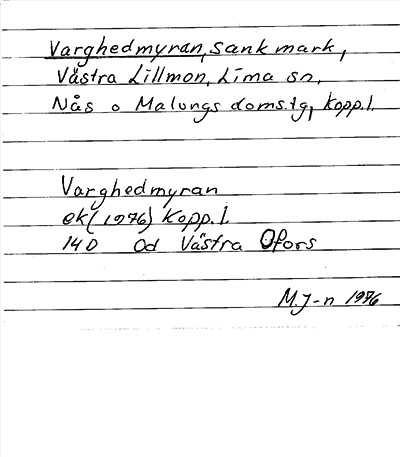 Varghedmyran, sank mark,
Västra Lillmon, Lima sn,
Nås o Malungs doms.tg, Kopp.l.
Varghedmyran
ek (1976) Kopp.l.
14D Od Västra Ofors
M.J-n 1976